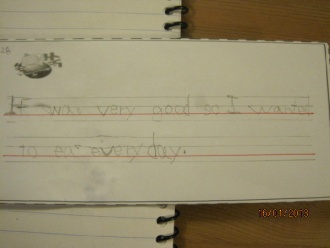 It was very good so I wanted
to eat everyday.
16/01/2013